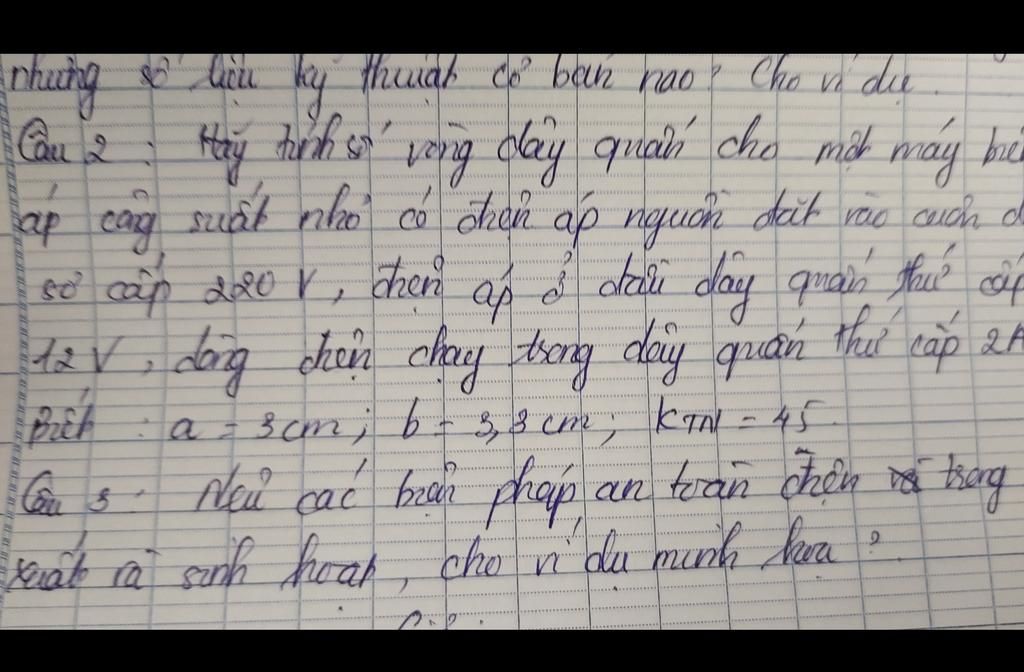 những số liệu kỹ thuật cơ bản nào? Cho ví dụ.
Câu 2: Hãy tính số vòng dây quấn cho một máy biế
áp công suất nhỏ có điện áp nguồn đặt vào cuộn d
sơ cấp 220 V, điện áp ở đầu dây quấn thứ cấp
12 V, dòng điện chạy trong dây quấn thứ cấp 2A
Biết: a = 3cm; b = 3,3 cm; KTN = 45.
Câu 3. Nêu các biện pháp an toàn điện trong
xuất và sinh hoạt, cho ví dụ minh họa?